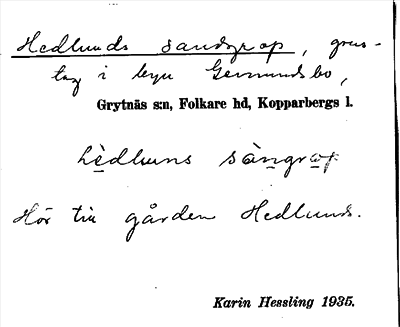 Hedlunds sandgrop, grus-
tag i byn Germundsbo,
Grytnäs s:n, Folkare hd, Kopparbergs l.
hèdluns sàngrop
Hör till gården Hedlunds.
Karin Hessling 1935.